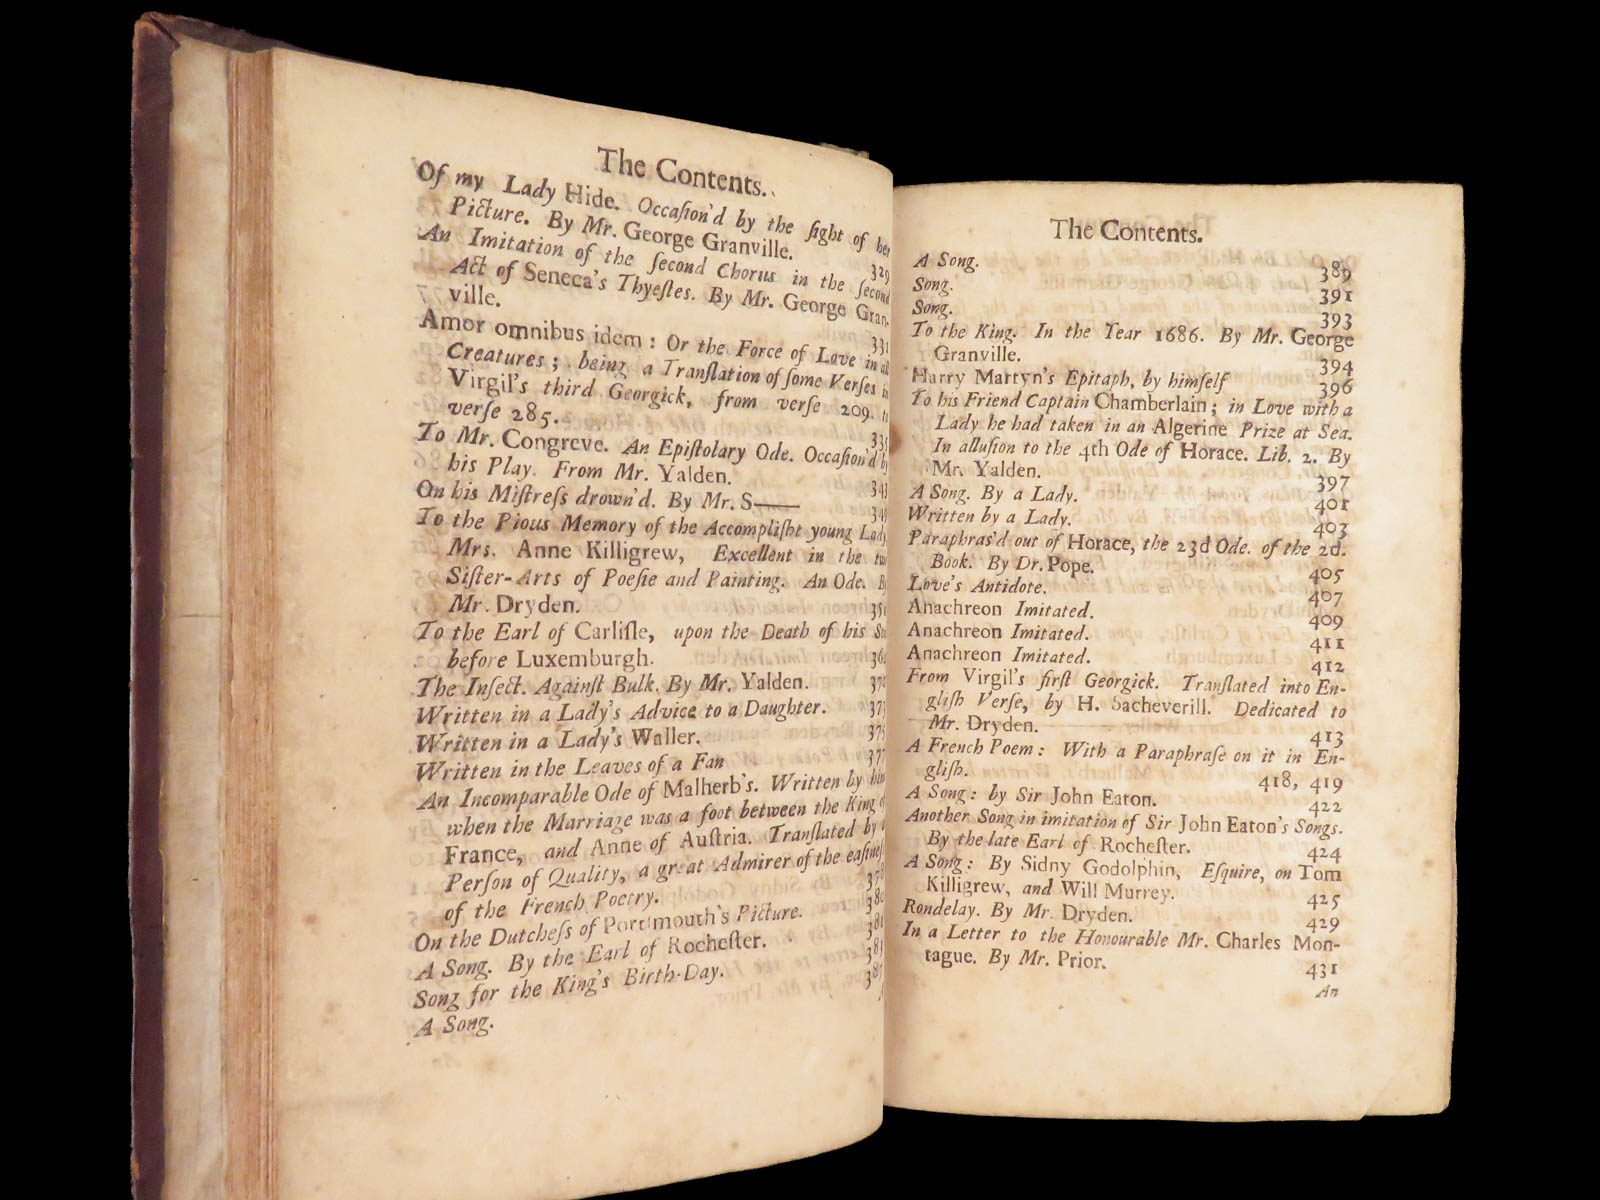 The Contents.
Of my Lady Hide. Occaſion'd by the ſight of her
Picture. By Mr. George Granville. 329
An Imitation of the ſecond Chorus in the ſecond
Act of Seneca's Thyeſtes. By Mr. George Gran-
ville. 331
Amor omnibus idem: Or the Force of Love in all
Creatures; being a Tranſlation of ſome Verſes in
Virgil's third Georgick, from verſe 209. to
verſe 285. 335
To Mr. Congreve. An Epiſtolary Ode. Occaſion'd by
his Play. From Mr. Yalden. 343
On his Miſtreſs drown'd. By Mr. S——
To the Pious Memory of the Accompliſht young Lady
Mrs. Anne Killigrew, Excellent in the two
Siſter-Arts of Poeſie and Painting. An Ode. By
Mr. Dryden. 351
To the Earl of Carliſle, upon the Death of his
before Luxemburgh.
The Inſect. Againſt Bulk. By Mr. Yalden.
Written in a Lady's Advice to a Daughter. 373
Written in a Lady's Waller. 375
Written in the Leaves of a Fan 377
An Incomparable Ode of Malherb's. Written by him
when the Marriage was a foot between the King of
France, and Anne of Auſtria. Tranſlated by
Perſon of Quality, a great Admirer of the eaſineſs
of the French Poetry. 378
On the Dutcheſs of Portſmouth's Picture. 380
A Song. By the Earl of Rocheſter. 381
Song for the King's Birth-Day.
A Song. 387
The Contents.
A Song. 389
Song. 391
Song. 393
To the King. In the Year 1686. By Mr. George
Granville. 394
Harry Martyn's Epitaph, by himſelf 396
To his Friend Captain Chamberlain; in Love with a
Lady he had taken in an Algerine Prize at Sea.
In alluſion to the 4th Ode of Horace. Lib. 2. By
Mr. Yalden. 397
A Song. By a Lady. 401
Written by a Lady. 403
Paraphras'd out of Horace, the 23d Ode. of the 2d.
Book. By Dr. Pope. 405
Love's Antidote. 407
Anachreon Imitated. 409
Anachreon Imitated. 411
Anachreon Imitated. 412
From Virgil's firſt Georgick. Tranſlated into En-
gliſh Verſe, by H. Sacheverill. Dedicated to
Mr. Dryden. 413
A French Poem: With a Paraphraſe on it in En-
gliſh. 418, 419
A Song: by Sir John Eaton. 422
Another Song in imitation of Sir John Eaton's Songs.
By the late Earl of Rocheſter. 424
A Song: By Sidny Godolphin, Eſquire, on Tom
Killigrew, and Will Murrey. 425
Rondelay. By Mr. Dryden. 429
In a Letter to the Honourable Mr. Charles Mon-
tague. By Mr. Prior. 431
An